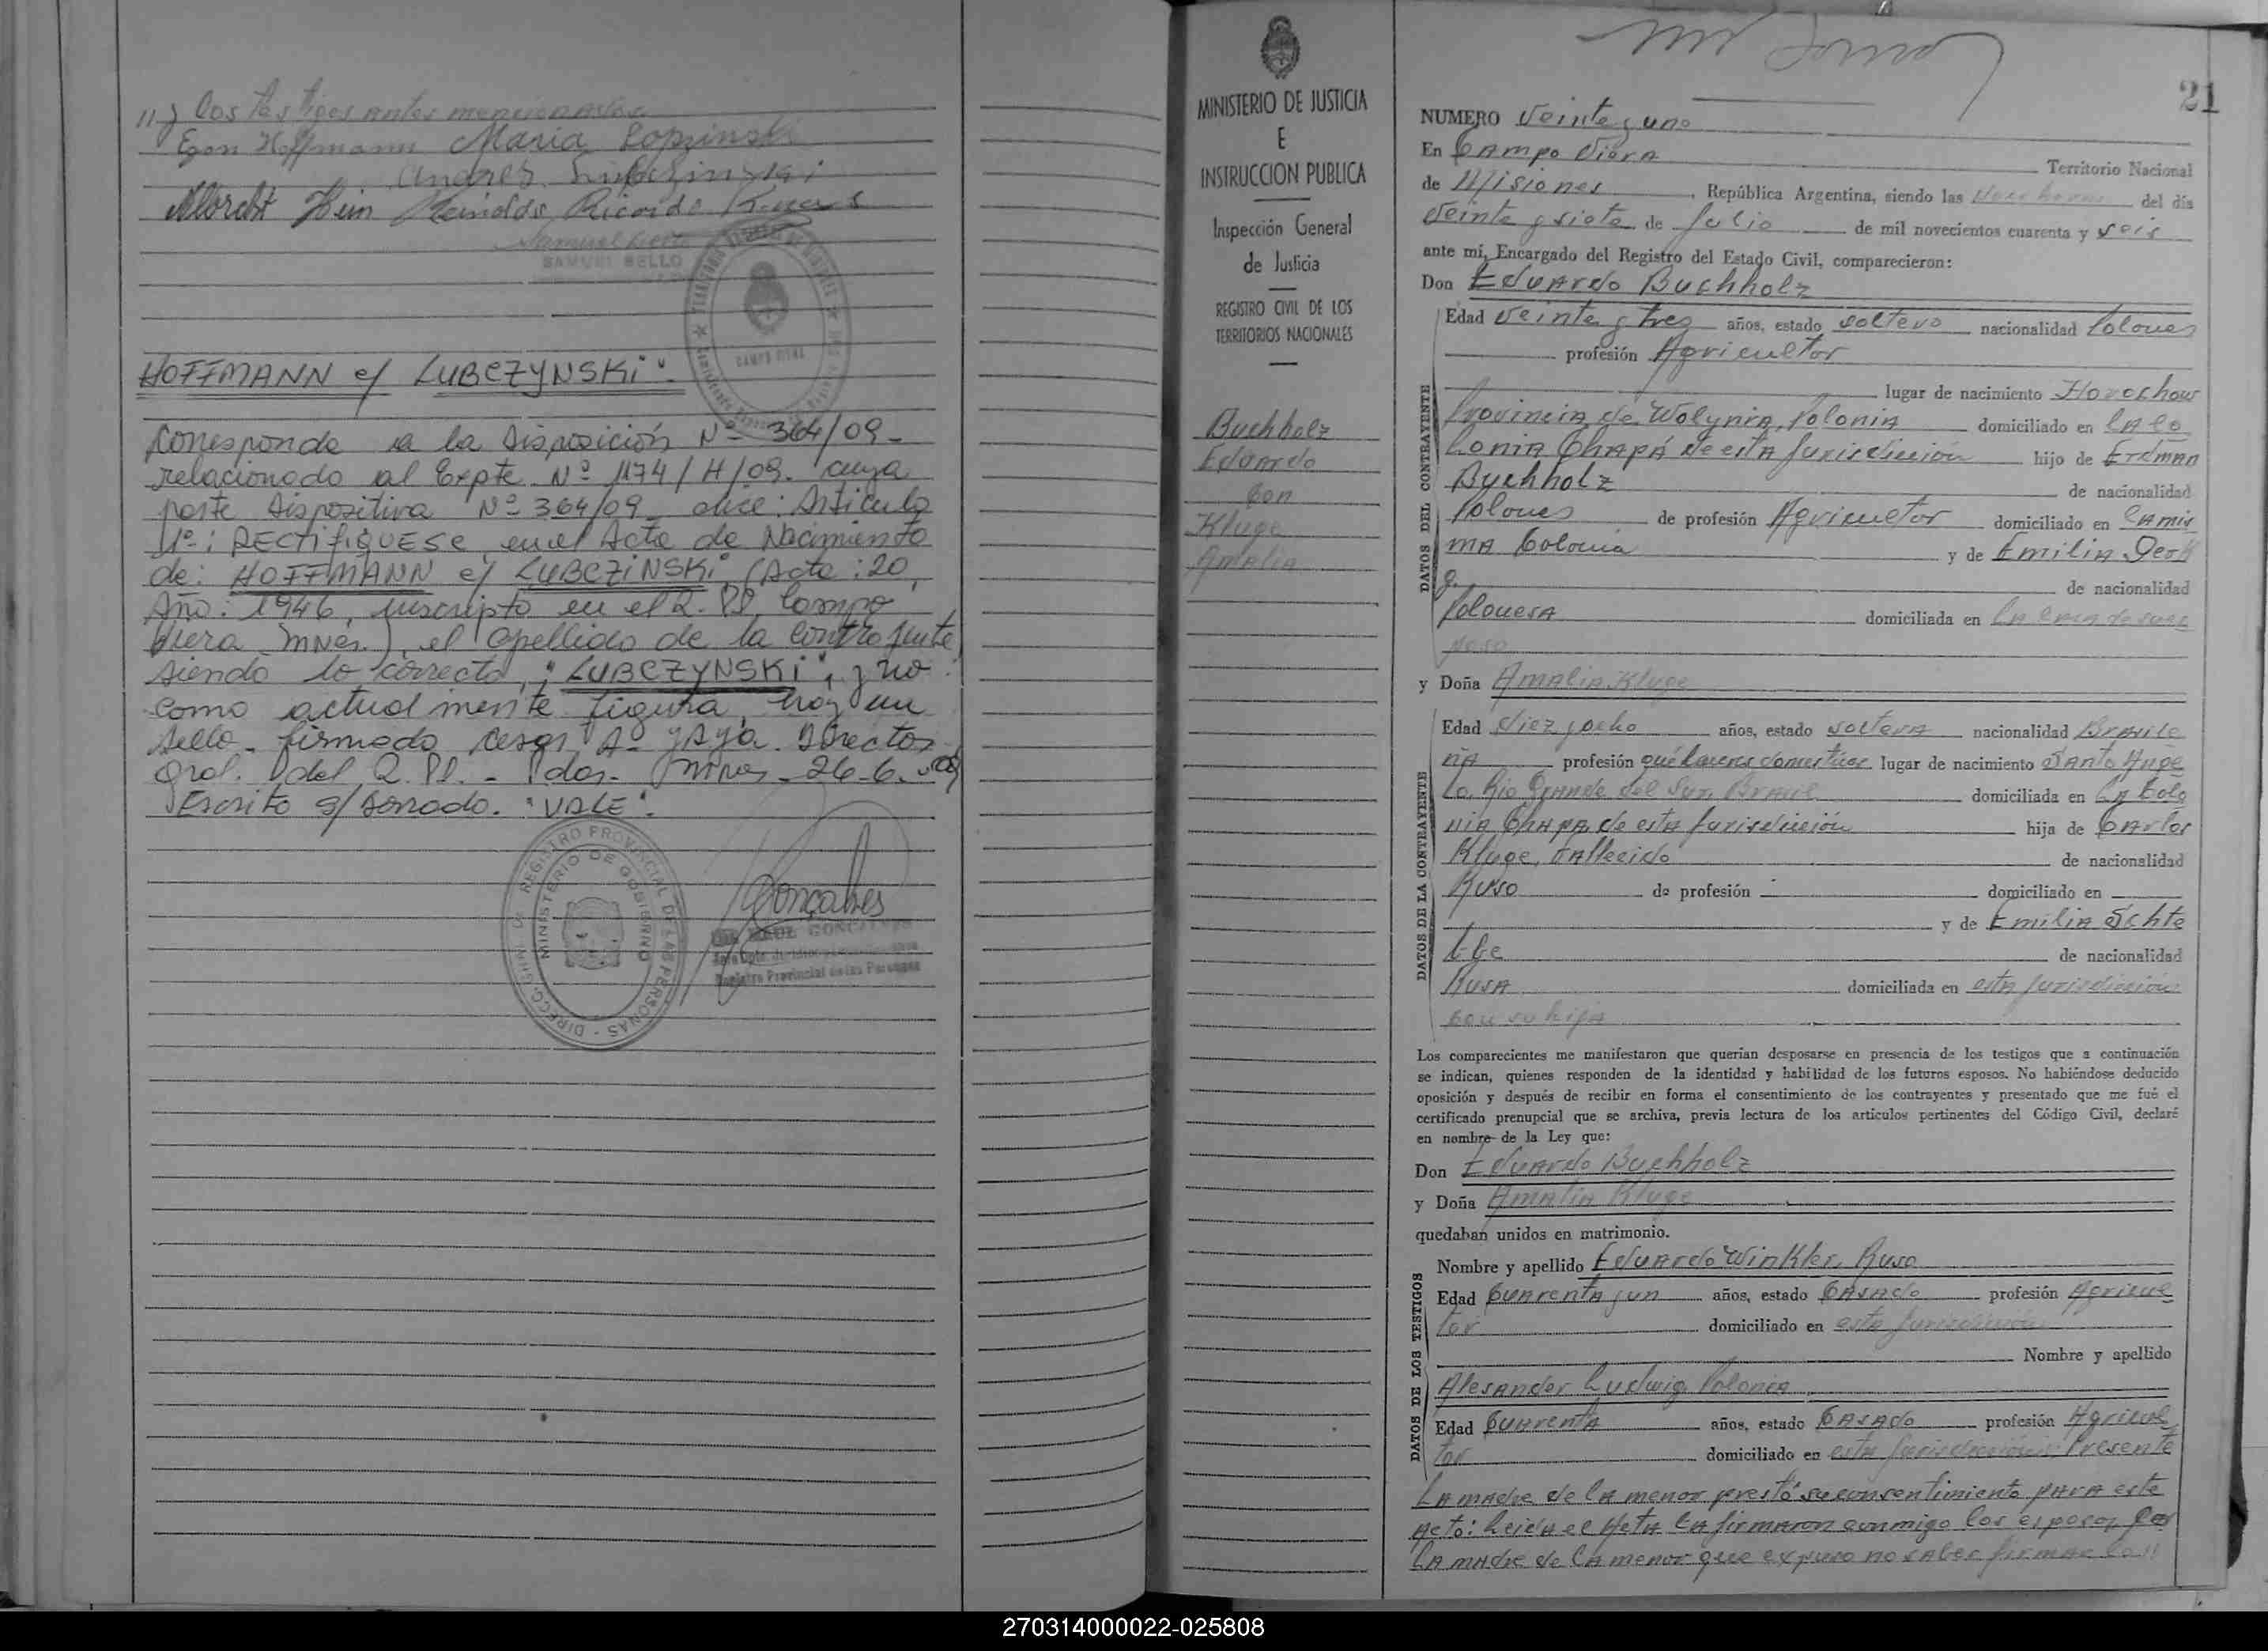 11) los testigos antes mencionados
Egon Hoffmann Maria Lopzinski
Andrés Lubczinski
Albrecht Hein Reinoldo Ricardo
Samuel Bello
SAMUEL BELLO
CAMPO VIERA
HOFFMANN c/ LUBCZYNSKi".
Corresponde a la Disposición Nº 364/09-
relacionado al Expte. Nº 1174/H/09. cuya
parte Dispositiva Nº 364/09_ dice: Articulo
1º: RECTIFIQUESE, en el Acta de Nacimiento
de: HOFFMANN c/ LUBCZiNSKi, (Acta: 20,
Año: 1946, inscripto en el R. PP. Campo
Viera Mnes.), el apellido de la Contrayente
siendo lo correcto, "LUBCZYNSKi", y no
como actualmente figura, hay un
sello - firmado Cesar A.
Gral. del R. PP. - Pdas. Mnes - 26-6-
Escrito s/ borrado. "VALE".
DIRECC. GRAL. DE REGISTRO PROVINCIAL DE LAS PERSONAS
MINISTERIO DE GOBIERNO
Gonçalves
RAUL GONCALVES
Registro Provincial de las Personas
MINISTERIO DE JUSTICIA
E
INSTRUCCION PUBLICA
Inspección General
de Justicia
REGISTRO CIVIL DE LOS
TERRITORIOS NACIONALES
Buchholz
Eduardo
Con
Kluge
Amalia
21
NUMERO Veinte y uno
En Campo Viera Territorio Nacional
de Misiones, República Argentina, siendo las horas del día
Veinte y siete de Julio de mil novecientos cuarenta y seis
ante mí, Encargado del Registro del Estado Civil, comparecieron:
Don Eduardo Buchholz
DATOS DEL CONTRAYENTE
Edad Veinte y tres años, estado soltero nacionalidad Polones
profesión Agricultor
lugar de nacimiento Horochow
Provincia de Wolynia, Polonia domiciliado en la Co
lonia Chapá de esta Jurisdicción hijo de Erdman
Buchholz de nacionalidad
Polones de profesión Agricultor domiciliado en la mis
ma Colonia y de Emilia
de nacionalidad
Polonesa domiciliada en la casa de su es
poso
y Doña Amalia Kluge
DATOS DE LA CONTRAYENTE
Edad diez y ocho años, estado soltera nacionalidad Brasile
ña profesión quehaceres domesticos lugar de nacimiento Santo Ange
lo, Rio Grande del Sur, Brasil domiciliada en la Colo
nia Chapá de esta Jurisdicción hija de Carlos
Kluge, fallecido de nacionalidad
Ruso de profesión domiciliado en
y de Emilia Schte
de nacionalidad
Rusa domiciliada en esta Jurisdicción
con su hija
Los comparecientes me manifestaron que querían desposarse en presencia de los testigos que a continuación
se indican, quienes responden de la identidad y habilidad de los futuros esposos. No habiéndose deducido
oposición y después de recibir en forma el consentimiento de los contrayentes y presentado que me fué el
certificado prenupcial que se archiva, previa lectura de los artículos pertinentes del Código Civil, declaré
en nombre de la Ley que:
Don Eduardo Buchholz
y Doña Amalia Kluge
quedaban unidos en matrimonio.
DATOS DE LOS TESTIGOS
Nombre y apellido Eduardo Winkler, Ruso
Edad Cuarenta y un años, estado Casado profesión Agricul
tor domiciliado en esta Jurisdicción
Nombre y apellido
Alesander Ludwig, Polonia
Edad Cuarenta años, estado Casado profesión Agricul
tor domiciliado en esta Jurisdicción: Presente
la madre de la menor prestó su consentimiento para este
acto: Leida el Acta la firmaron conmigo los esposos, por
la madre de la menor que expuso no saber firmar lo 11
270314000022-025808